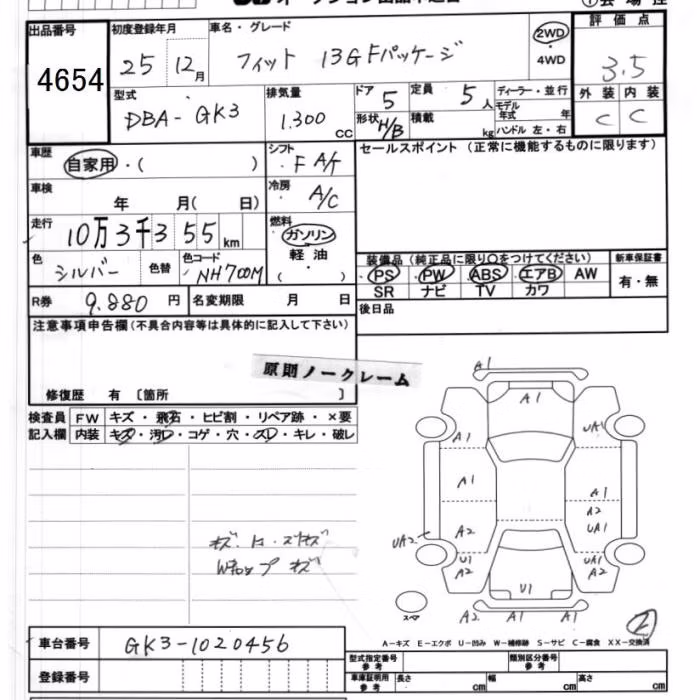 オークション出品申込書
出品番号 初度登録年月 車名・グレード 評価点
4654 25 12月 フィット 13GFパッケージ 2WD・4WD 3.5
型式 排気量 ドア 定員 ディーラー・並行 外装 内装
DBA-GK3 1.300 CC 5 5人 モデル年式 年 C C
形状 H/B 積載 kg ハンドル 左・右
車歴 シフト セールスポイント (正常に機能するものに限ります)
自家用・( ) F A/T
車検 冷房
年 月( 日) A/C
走行 燃料
10万3千355km ガソリン
軽油
・
( )
色 色替 色コード
シルバー NH700M
装備品 (純正品に限り○をつけてください) 新車保証書
PS・PW・ABS・エアB・AW 有・無
SR ナビ TV カワ
R券 9.880円 名変期限 月 日 後日品
注意事項申告欄(不具合内容等は具体的に記入して下さい)
原則ノークレーム
修復歴 有 〔箇所 〕
検査員 FW キズ・飛石・ヒビ割・リペア跡・×要
記入欄 内装 キズ・汚レ・コゲ・穴・スレ・キレ・破レ
A1
A1
A1 UA1
A1 A1
A2
UA2 A2 UA1
U1 UA1
A2 A2
U1
スペア A2 A1 A1
2
A-キズ E-エクボ U-凹み W-補修跡 S-サビ C-腐食 XX-交換済
車台番号 GK3-1020456
型式指定番号 類別区分番号
参考
登録番号
車庫証明用 長さ cm 幅 cm 高さ cm
参考